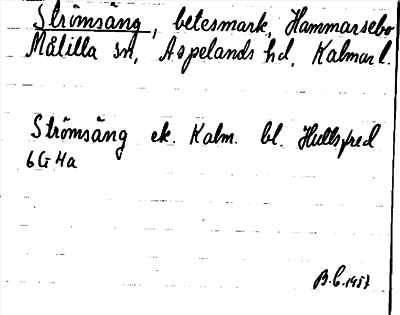 Strömsäng, betesmark, Hammarsebo
Målilla sn, Aspelands hd, Kalmar l.
Strömsäng ek. Kalm. bl. Hultsfred
6G 4a
B.C. 1957